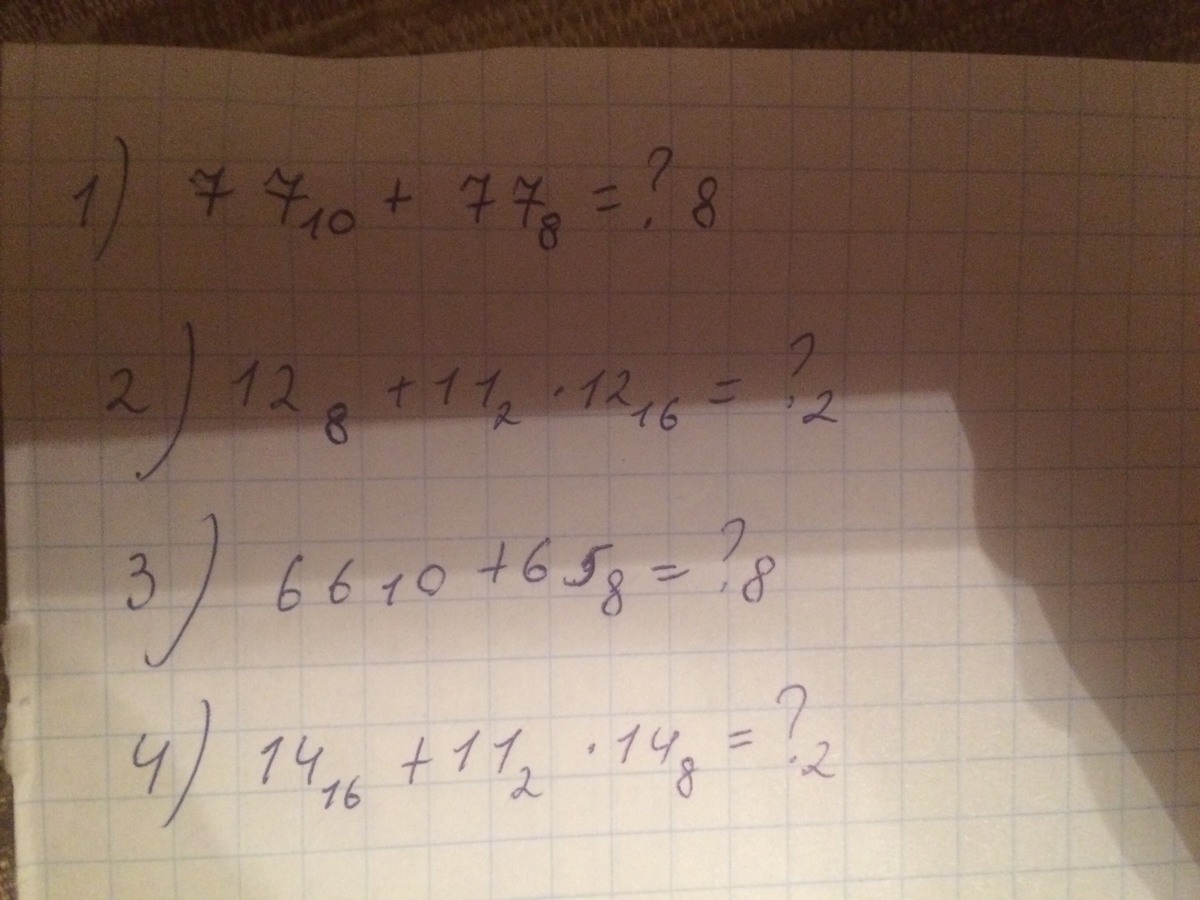 1) 77₁₀ + 77₈ = ? 8
2) 12₈ + 11₂ · 12₁₆ = ?₂
3) 66₁₀ + 65₈ = ?₈
4) 14₁₆ + 11₂ · 14₈ = ?₂